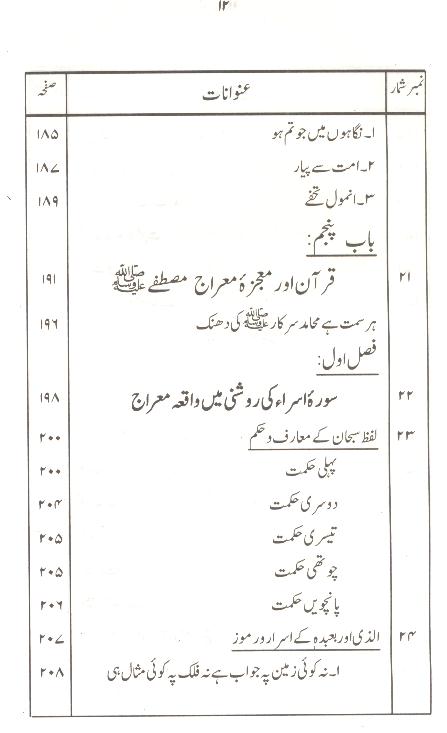 ۱۲
نمبر شمار عنوانات صفحہ
۱۔ نگاہوں میں جو تم ہو ۱۸۵
۲۔ امت سے پیار ۱۸۷
۳۔ انمول تحفے ۱۸۹
باب پنجم:
۲۱ قرآن اور معجزۂ معراج مصطفےٰ ﷺ ۱۹۱
ہر سمت ہے محامد سرکار ﷺ کی دھنک ۱۹۶
فصل اول:
۲۲ سورۂ اسراء کی روشنی میں واقعہ معراج ۱۹۸
۲۳ لفظ سبحان کے معارف و حکم ۲۰۰
پہلی حکمت ۲۰۰
دوسری حکمت ۲۰۴
تیسری حکمت ۲۰۵
چوتھی حکمت ۲۰۵
پانچویں حکمت ۲۰۶
۲۴ الذی اور بعبدہ کے اسرار و رموز ۲۰۷
۱۔ نہ کوئی زمین پہ جواب ہے نہ فلک پہ کوئی مثال ہی ۲۰۸